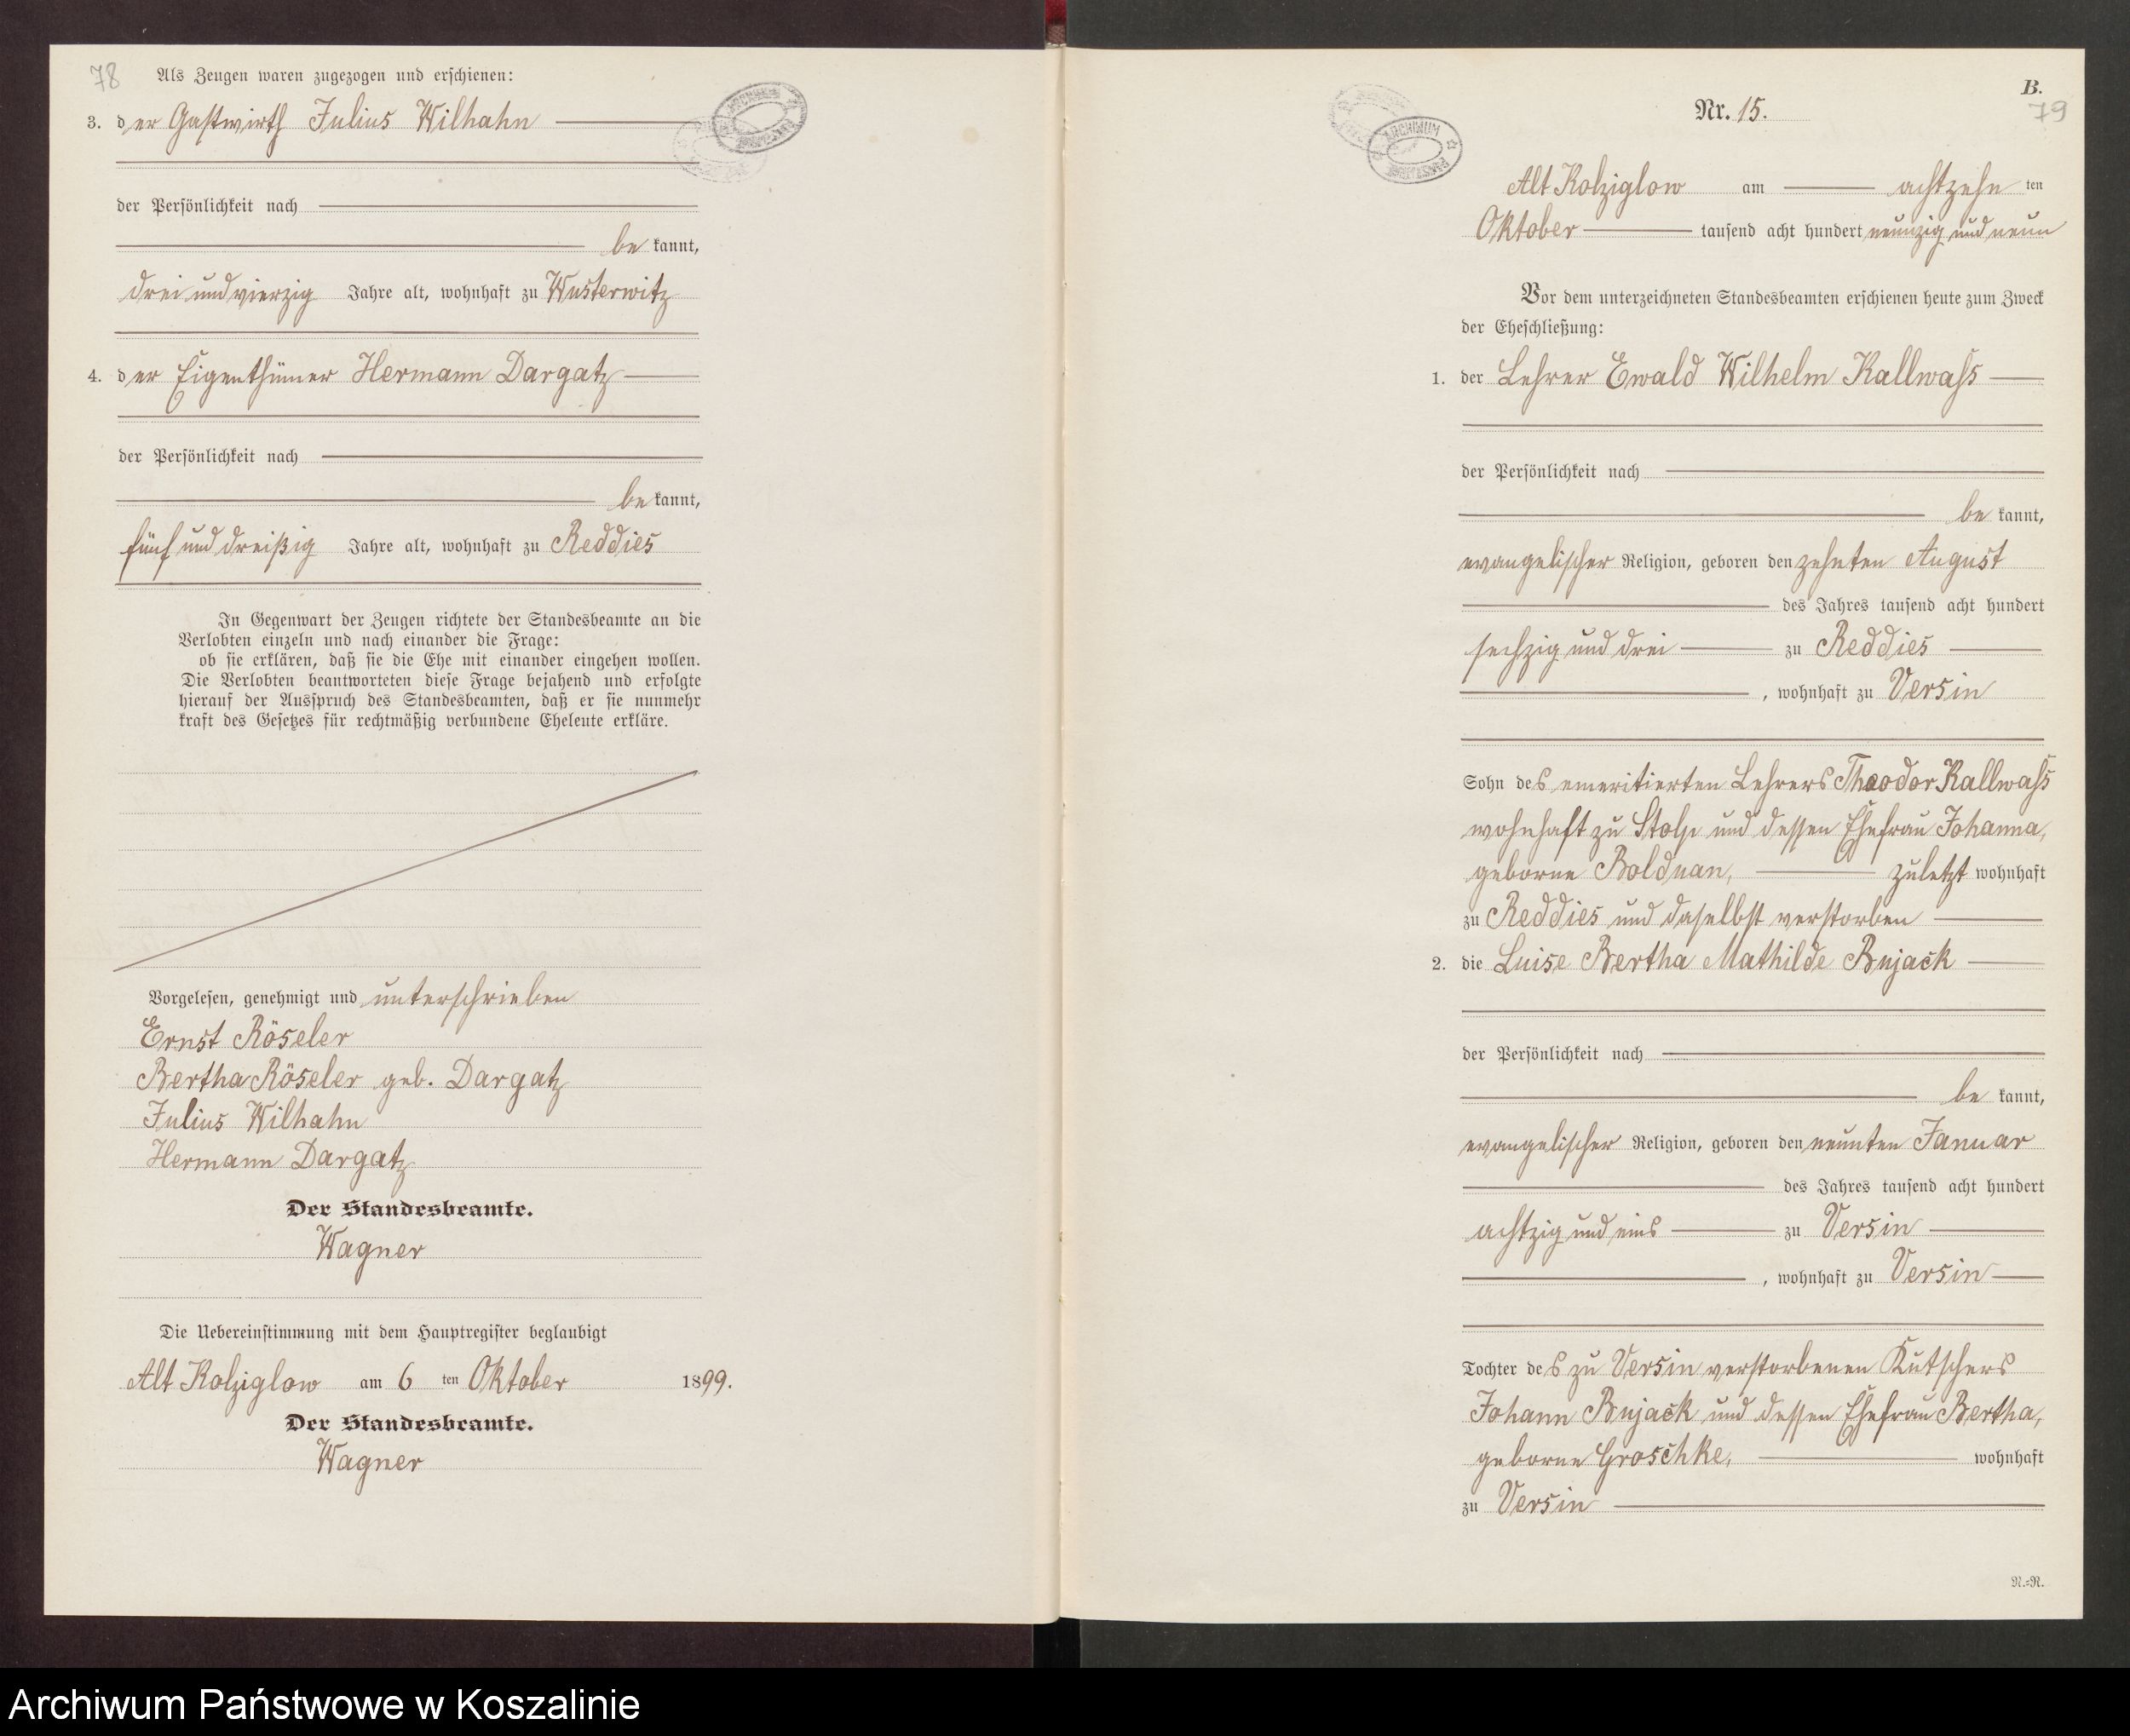 78
Als Zeugen waren zugezogen und erschienen:
3. der Gastwirth Julius Wilhahn
der Persönlichkeit nach
be kannt,
drei und vierzig Jahre alt, wohnhaft zu Wusterwitz
4. der Eigenthümer Hermann Dargatz
der Persönlichkeit nach
be kannt,
fünf und dreißig Jahre alt, wohnhaft zu Reddies
In Gegenwart der Zeugen richtete der Standesbeamte an die
Verlobten einzeln und nach einander die Frage:
ob sie erklären, daß sie die Ehe mit einander eingehen wollen.
Die Verlobten beantworteten diese Frage bejahend und erfolgte
hierauf der Ausspruch des Standesbeamten, daß er sie nunmehr
kraft des Gesetzes für rechtmäßig verbundene Eheleute erkläre.
Vorgelesen, genehmigt und unterschrieben
Ernst Röseler
Bertha Röseler geb. Dargatz
Julius Wilhahn
Hermann Dargatz
Der Standesbeamte.
Wagner
Die Uebereinstimmung mit dem Hauptregister beglaubigt
Alt Kolziglow am 6 ten Oktober 1899.
Der Standesbeamte.
Wagner
B.
Nr. 15.
79
Alt Kolziglow am achtzehn ten
Oktober tausend acht hundert neunzig und neun
Vor dem unterzeichneten Standesbeamten erschienen heute zum Zweck
der Eheschließung:
1. der Lehrer Ewald Wilhelm Kallwass
der Persönlichkeit nach
be kannt,
evangelischer Religion, geboren den zehnten August
des Jahres tausend acht hundert
sechzig und drei zu Reddies
, wohnhaft zu Versin
Sohn des emeritierten Lehrers Theodor Kallwass
wohnhaft zu Stolp und dessen Ehefrau Johanna,
geborne Bolduan, zuletzt wohnhaft
zu Reddies und daselbst verstorben
2. die Luise Bertha Mathilde Bujack
der Persönlichkeit nach
be kannt,
evangelischer Religion, geboren den neunten Januar
des Jahres tausend acht hundert
achtzig und eins zu Versin
, wohnhaft zu Versin
Tochter des zu Versin verstorbenen Kutschers
Johann Bujack und dessen Ehefrau Bertha,
geborne Groschke, wohnhaft
zu Versin
N.=N.
Archiwum Państwowe w Koszalinie